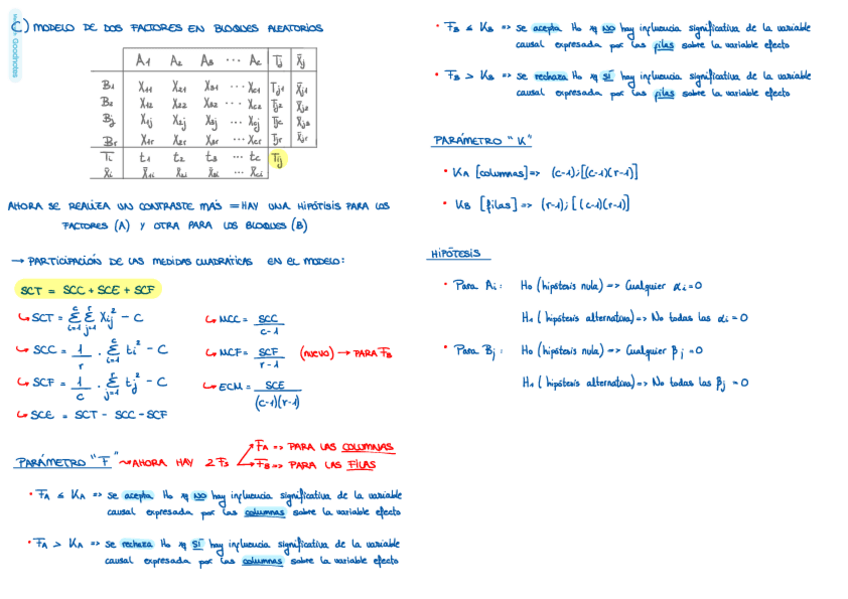 Made with Goodnotes
C) MODELO DE DOS FACTORES EN BLOQUES ALEATORIOS
A1 A2 A3 ... Ac Tj x̄j
B1 X11 X21 X31 ... Xc1 Tj1 x̄j1
B2 X12 X22 X32 ... Xc2 Tj2 x̄j2
Bj X1j X2j X3j ... Xcj Tjc x̄j3
Br X1r X2r X3r ... Xcr Tjr x̄jr
Ti t1 t2 t3 ... tc Tij
x̄i x̄1i x̄2i x̄3i ... x̄ci
AHORA SE REALIZA UN CONTRASTE MÁS = HAY UNA HIPÓTISIS PARA LOS
FACTORES (A) Y OTRA PARA LOS BLOQUES (B)
→ PARTICIPACIÓN DE LAS MEDIDAS CUADRÁTICAS EN EL MODELO:
SCT = SCC + SCE + SCF
↳ SCT = Σ(i=1..c) Σ(j=1..r) Xij² - C
↳ SCC = 1/r · Σ(i=1..c) ti² - C
↳ SCF = 1/c · Σ(j=1..r) tj² - C
↳ SCE = SCT - SCC - SCF
↳ MCC = SCC/(c-1)
↳ MCF = SCF/(r-1) (nuevo) → PARA FB
↳ ECM = SCE/((c-1)(r-1))
PARÁMETRO "F" → AHORA HAY 2 Fs
FA => PARA LAS COLUMNAS
FB => PARA LAS FILAS
• FA ≤ KA => se acepta Ho y NO hay influencia significativa de la variable
causal expresada por las columnas sobre la variable efecto
• FA > KA => se rechaza Ho y SÍ hay influencia significativa de la variable
causal expresada por las columnas sobre la variable efecto
• FB ≤ KB => se acepta Ho y NO hay influencia significativa de la variable
causal expresada por las filas sobre la variable efecto
• FB > KB => se rechaza Ho y SÍ hay influencia significativa de la variable
causal expresada por las filas sobre la variable efecto
PARÁMETRO "K"
• KA [columnas] => (c-1);[(c-1)(r-1)]
• KB [filas] => (r-1);[(c-1)(r-1)]
HIPÓTESIS
• Para Ai: Ho (hipótesis nula) => Cualquier αi = 0
H1 (hipótesis alternativa) => No todas las αi = 0
• Para Bj: Ho (hipótesis nula) => Cualquier βj = 0
H1 (hipótesis alternativa) => No todas las βj = 0